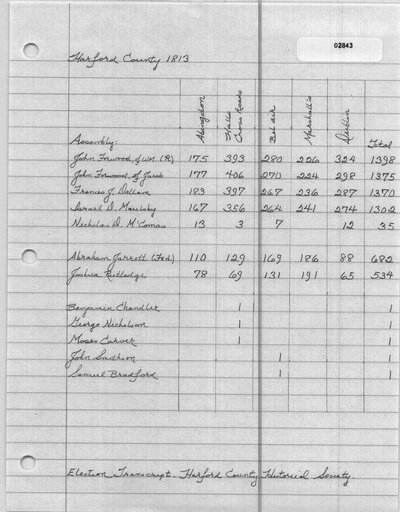 02843
Harford County 1813
Abingdon Halls Cross Roads Bel air Marshall's Dublin
Assembly: Total
John Forwood, of Wm (R) 175 393 280 226 324 1398
John Forwood, of Jacob 177 406 270 224 298 1375
Francis J. Dallam 183 397 267 236 287 1370
Israel D. Maulsby 167 356 264 241 274 1302
Nicholas D. M'Comas 13 3 7 12 35
Abraham Jarrett (Fed) 110 129 169 186 88 682
Joshua Rutledge 78 69 131 191 65 534
Benjamin Chandlee 1 1
George Nicholson 1 1
Moses Carver 1 1
John Smithson 1 1
Samuel Bradford 1 1
Election Transcript. Harford County Historical Society.